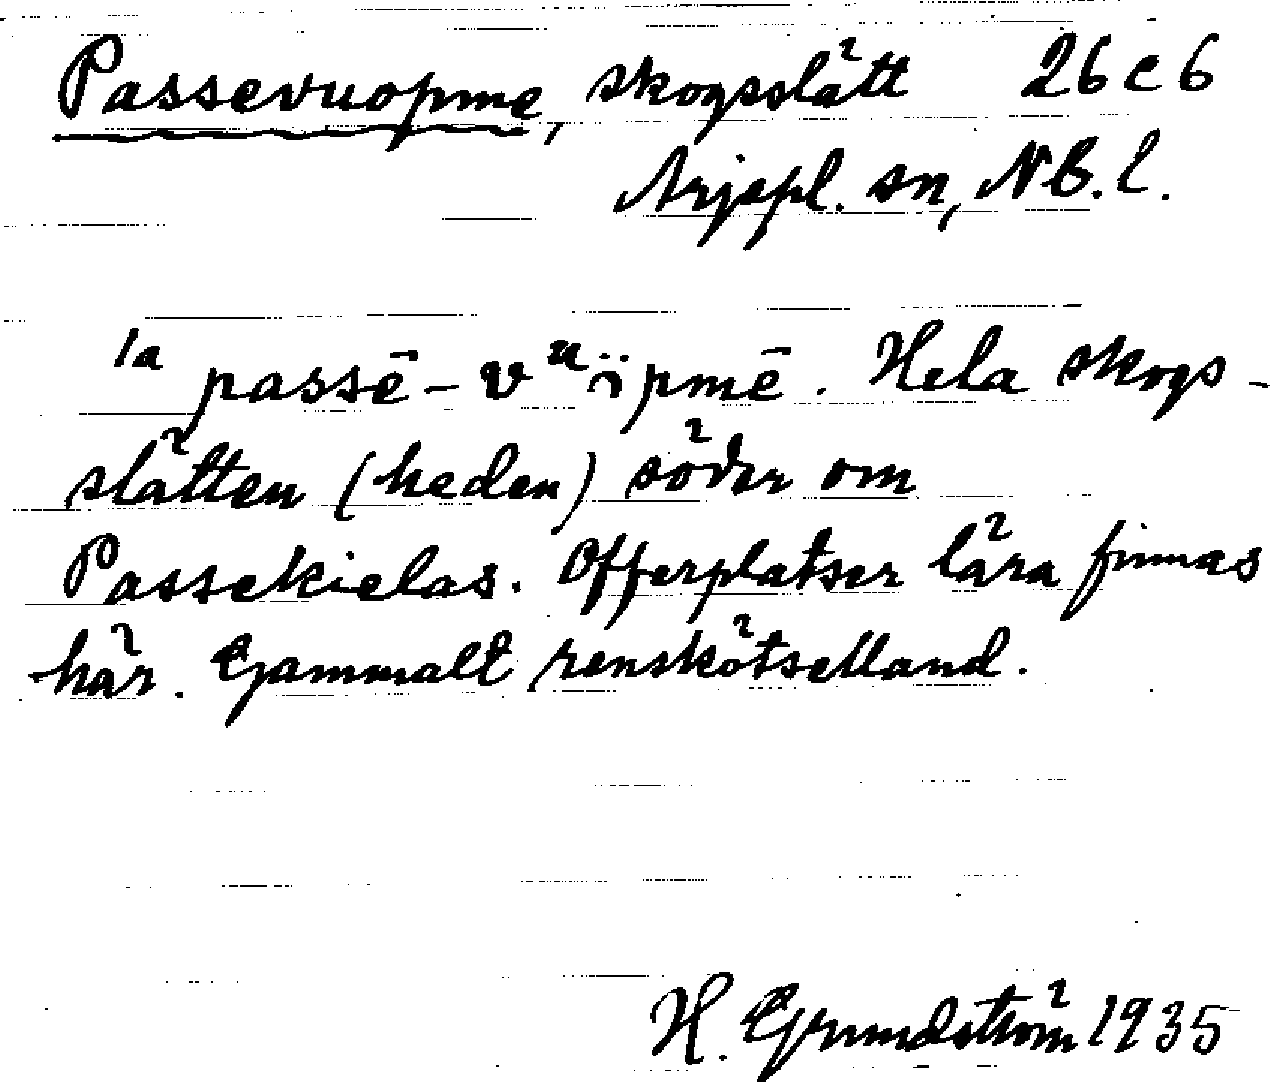 Passevuopme, skogsslätt 26 C 6
Arjepl. sn, NB. l.
1a passē-vᵘöpmē. Hela skogs-
slätten (heden) söder om
Passekielas. Offerplatser lära finnas
här. Gammalt renskötselland.
H. Grundström 1935